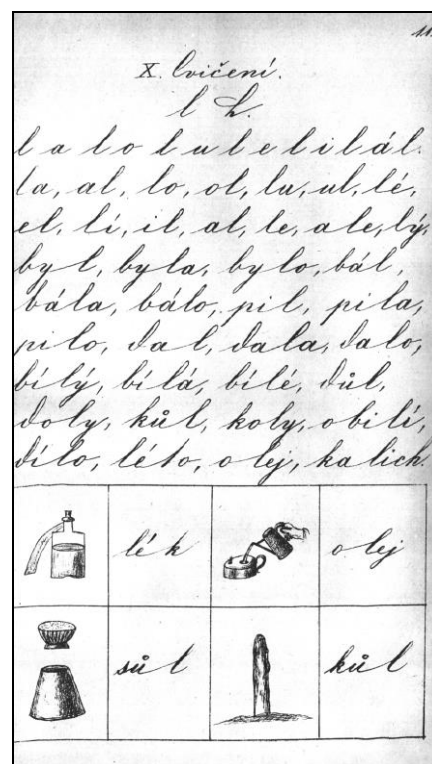 11.
X. Cvičení.
l L.
l a l o l u l e l i l á l.
la, al, lo, ol, lu, ul, lé,
el, lí, il, al, le, ale, lý,
byl, byla, bylo, bál,
bála, bálo, pil, pila,
pilo, dal, dala, dalo,
bílý, bílá, bílé, důl,
doly, kůl, koly, obilí,
dílo, léto, olej, kalich.
lék olej
sůl kůl